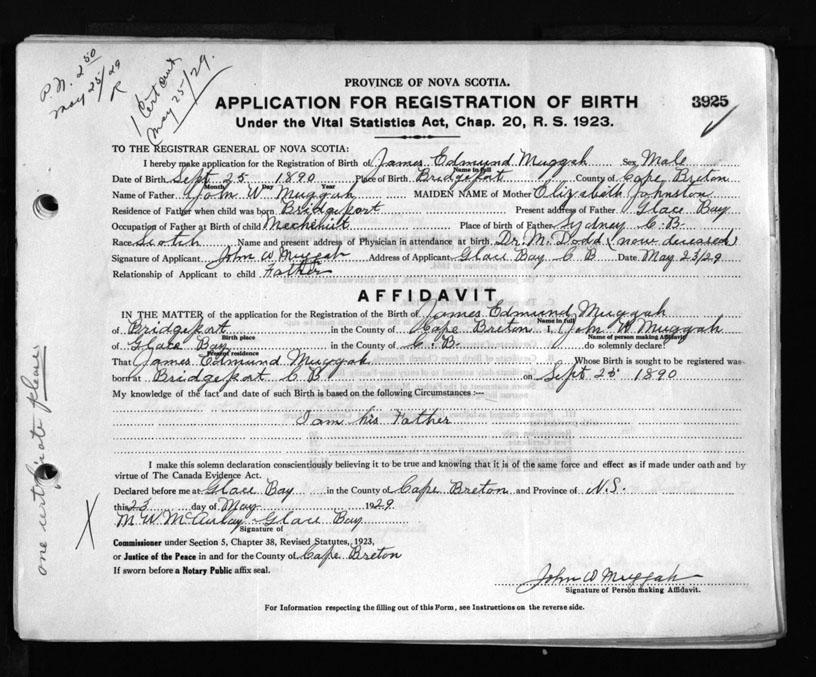 P. N. 2.50
May 25/29
R
1 Cert out
May 25/29.
PROVINCE OF NOVA SCOTIA.
APPLICATION FOR REGISTRATION OF BIRTH
3925
Under the Vital Statistics Act, Chap. 20, R. S. 1923.
TO THE REGISTRAR GENERAL OF NOVA SCOTIA:
I hereby make application for the Registration of Birth of James Edmund Muggah Sex Male
Name in full
Date of Birth Sept 25 1890 Place of Birth Bridgeport County of Cape Breton
Month Day Year
Name of Father John W Muggah MAIDEN NAME of Mother Elizabeth Johnston
Residence of Father when child was born Bridgeport Present address of Father Glace Bay
Occupation of Father at Birth of child Place of birth of Father Sydney C. B.
Race Scotch Name and present address of Physician in attendance at birth Dr. M. Dodd (now deceased)
Signature of Applicant John W Muggah Address of Applicant Glace Bay C B Date May 23/29
Relationship of Applicant to child Father
AFFIDAVIT
IN THE MATTER of the application for the Registration of the Birth of James Edmund Muggah
Name in full
of Bridgeport in the County of Cape Breton I, John W Muggah
Birth place Name of person making Affidavit
of Glace Bay in the County of C. B. do solemnly declare:
Present residence
That James Edmund Muggah Whose Birth is sought to be registered was
born at Bridgeport C B on Sept 25 1890
My knowledge of the fact and date of such Birth is based on the following Circumstances :—
I am his Father
I make this solemn declaration conscientiously believing it to be true and knowing that it is of the same force and effect as if made under oath and by
virtue of The Canada Evidence Act.
Declared before me at Glace Bay in the County of Cape Breton and Province of N.S.
this 23 day of May 1929.
M W McAulay Glace Bay
Signature of
Commissioner under Section 5, Chapter 38, Revised Statutes, 1923,
or Justice of the Peace in and for the County of Cape Breton
If sworn before a Notary Public affix seal.
John W Muggah
Signature of Person making Affidavit.
For Information respecting the filling out of this Form, see Instructions on the reverse side.
one certificate please
X